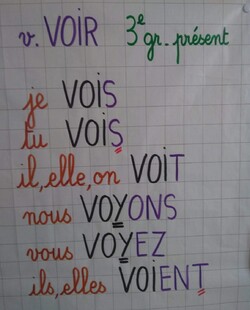 v. VOIR 3e gr. présent
je VOIS
tu VOIS
il, elle, on VOIT
nous VOYONS
vous VOYEZ
ils, elles VOIENT